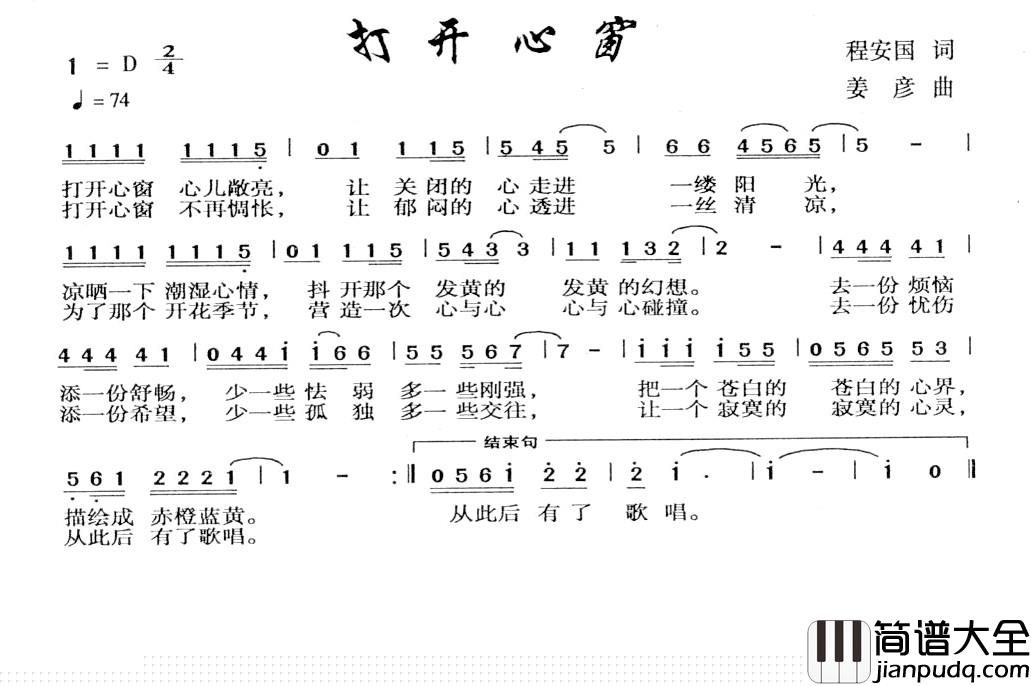 打开心窗
1 = D 2/4
程安国 词
♩=74
姜 彦 曲
1 1 1 1 1 1 1 5 | 0 1 1 1 5 | 5 4 5 5 | 6 6 4 5 6 5 | 5 - |
打开心窗 心儿敞亮, 让 关 闭的 心 走进 一缕 阳 光,
打开心窗 不再惆怅, 让 郁 闷的 心 透进 一丝 清 凉,
1 1 1 1 1 1 1 5 | 0 1 1 1 5 | 5 4 3 3 | 1 1 1 3 2 | 2 - | 4 4 4 4 1 |
凉晒一下 潮湿心情, 抖 开那个 发黄的 发黄 的幻想。 去一份 烦恼
为了那个 开花季节, 营 造一次 心与心 心与 心碰撞。 去一份 忧伤
4 4 4 4 1 | 0 4 4 i i 6 6 | 5 5 5 6 7 | 7 - | i i i i 5 5 | 0 5 6 5 5 3 |
添一份舒畅, 少一些 怯 弱 多一些刚强, 把一个 苍白的 苍白的心界,
添一份希望, 少一些 孤 独 多一些交往, 让一个 寂寞的 寂寞的心灵,
结束句
5 6 1 2 2 2 1 | 1 - :‖ 0 5 6 i 2 2 | 2 i . | i - | i 0 ‖
描绘成 赤橙蓝黄。 从此后 有 了 歌 唱。
从此后 有了歌唱。
简谱大全
jianpudq.com